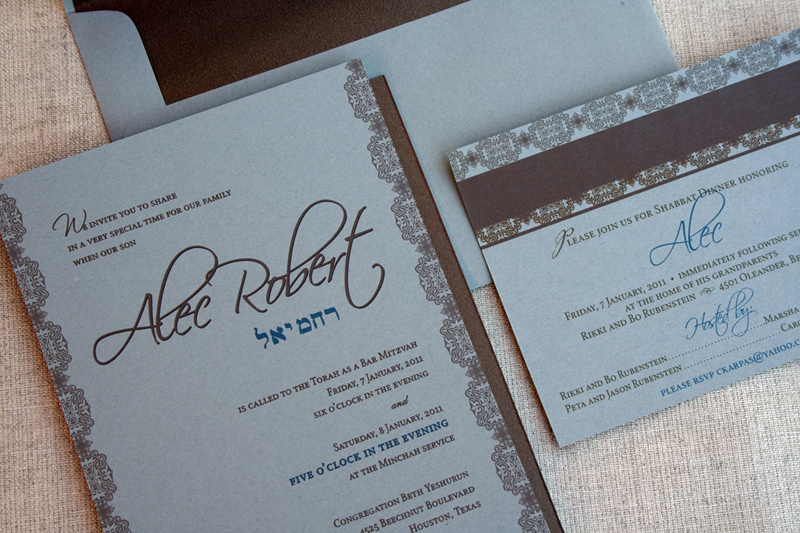 We invite you to share
in a very special time for our family
when our son
Alec Robert
רחמיאל
is called to the Torah as a Bar Mitzvah
Friday, 7 January, 2011
six o'clock in the evening
and
Saturday, 8 January, 2011
five o'clock in the evening
at the Minchah service
Congregation Beth Yeshurun
4525 Beechnut Boulevard
Houston, Texas
Please join us for Shabbat Dinner honoring
Alec
Friday, 7 January, 2011 • Immediately following
at the home of his grandparents
Rikki and Bo Rubenstein 4501 Oleander,
Hosted by:
Rikki and Bo Rubenstein Marsha
Peta and Jason Rubenstein
please rsvp ckarpas@yahoo.